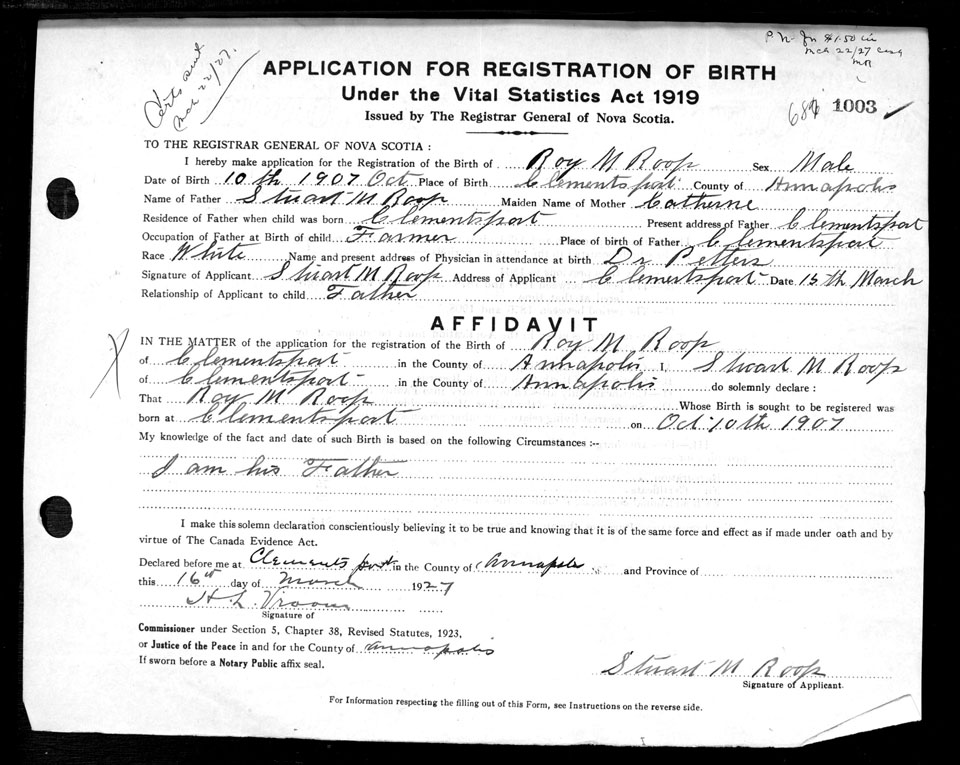 P.N. $1.50 in
Mch 22/27
MR
Certs sent
Mch 22/27.
APPLICATION FOR REGISTRATION OF BIRTH
Under the Vital Statistics Act 1919
Issued by The Registrar General of Nova Scotia.
1003
TO THE REGISTRAR GENERAL OF NOVA SCOTIA :
I hereby make application for the Registration of the Birth of Roy M Roop Sex Male
Date of Birth 10th 1907 Oct Place of Birth Clementsport County of Annapolis
Name of Father Stuart M Roop Maiden Name of Mother Catherine
Residence of Father when child was born Clementsport Present address of Father Clementsport
Occupation of Father at Birth of child Farmer Place of birth of Father Clementsport
Race White Name and present address of Physician in attendance at birth Dr Petters
Signature of Applicant Stuart M Roop Address of Applicant Clementsport Date 15th March
Relationship of Applicant to child Father
AFFIDAVIT
IN THE MATTER of the application for the registration of the Birth of Roy M. Roop
of Clementsport in the County of Annapolis I, Stuart M Roop
of Clementsport in the County of Annapolis do solemnly declare :
That Roy M Roop Whose Birth is sought to be registered was
born at Clementsport on Oct 10th 1907
My knowledge of the fact and date of such Birth is based on the following Circumstances :--
I am his Father
I make this solemn declaration conscientiously believing it to be true and knowing that it is of the same force and effect as if made under oath and by
virtue of The Canada Evidence Act.
Declared before me at Clementsport in the County of Annapolis and Province of
this 16th day of March 1927
H. L. Vroom
Signature of
Commissioner under Section 5, Chapter 38, Revised Statutes, 1923,
or Justice of the Peace in and for the County of Annapolis
If sworn before a Notary Public affix seal.
Stuart M Roop
Signature of Applicant.
For Information respecting the filling out of this Form, see Instructions on the reverse side.